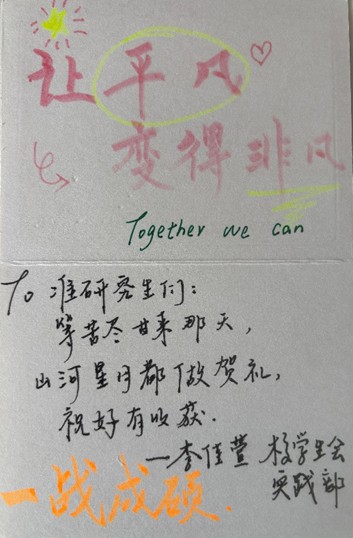 让平凡
变得非凡
Together we can
To 准研究生们：
等苦尽甘来那天，
山河星月都做贺礼，
祝好有收获.
—李佳萱 校学生会
实践部
一战成硕.